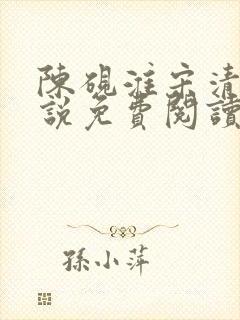 陳硯淮宋清
說免費閱讀
孫小萍